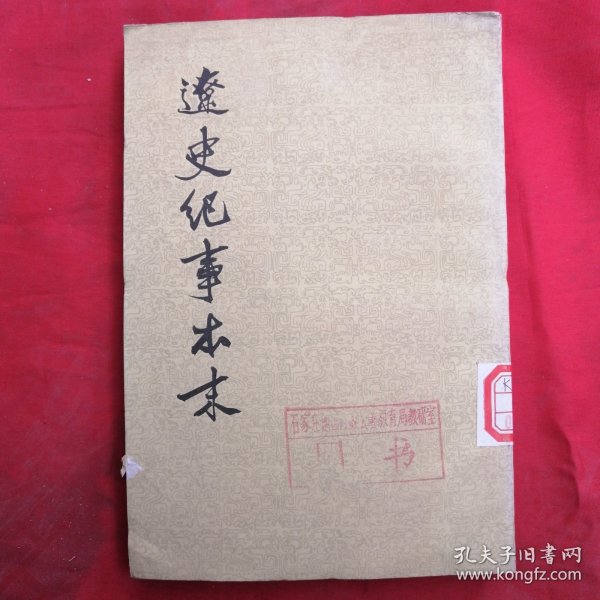 遼史纪事本末
K
石家庄
教育局教研室
书
孔夫子旧书网
www.kongfz.com